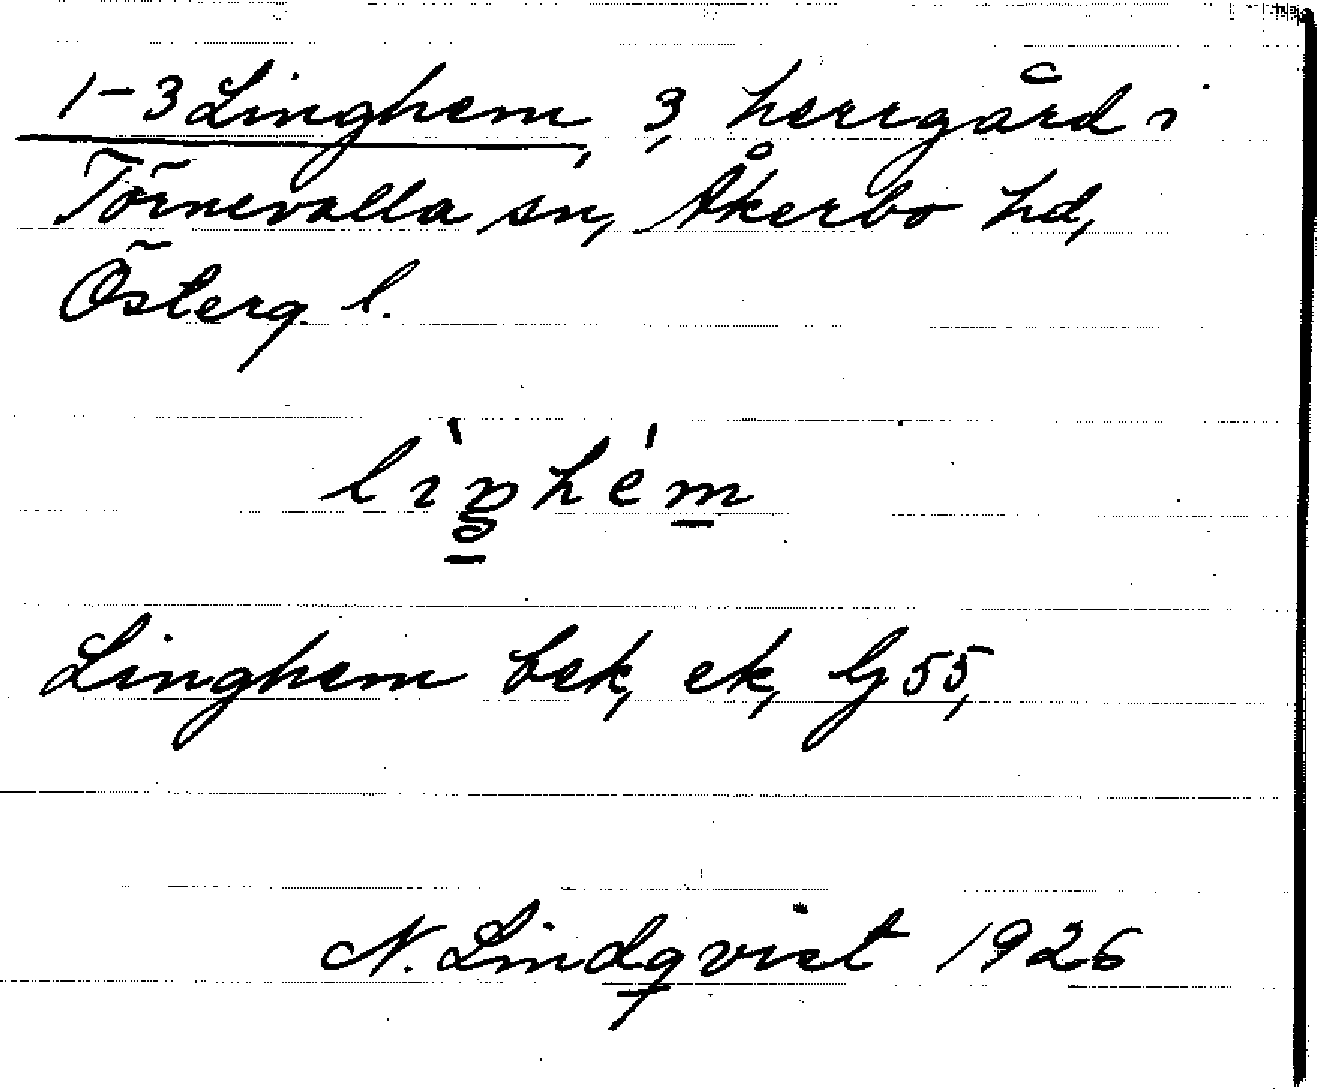 1-3 Linghem, 3, herrgård i
Törnevalla sn, Åkerbo hd,
Österg. l.
lìŋhém
Linghem bek, ek, Gj 55,
N. Lindqvist 1926